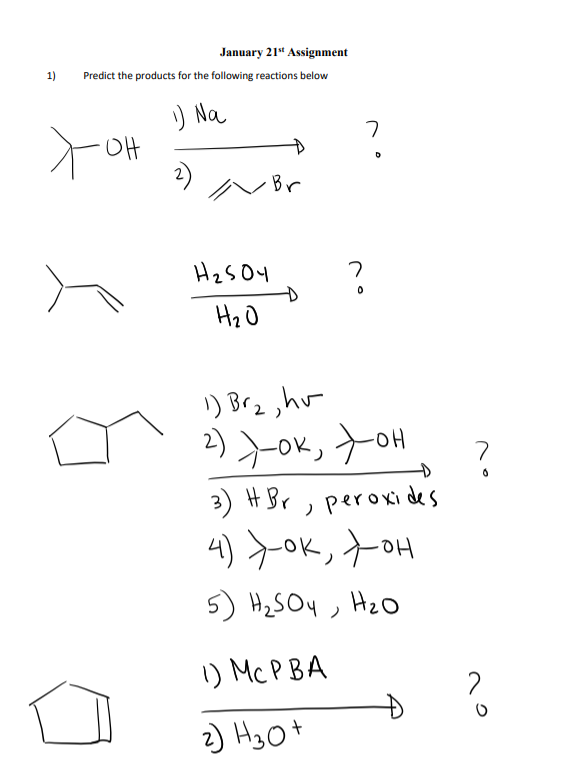 January 21st Assignment
1) Predict the products for the following reactions below
1) Na
OH
?
2) Br
H2SO4
?
H2O
1) Br2, hv
2) OK, OH
?
3) HBr, peroxides
4) OK, OH
5) H2SO4, H2O
1) McPBA
?
2) H3O+